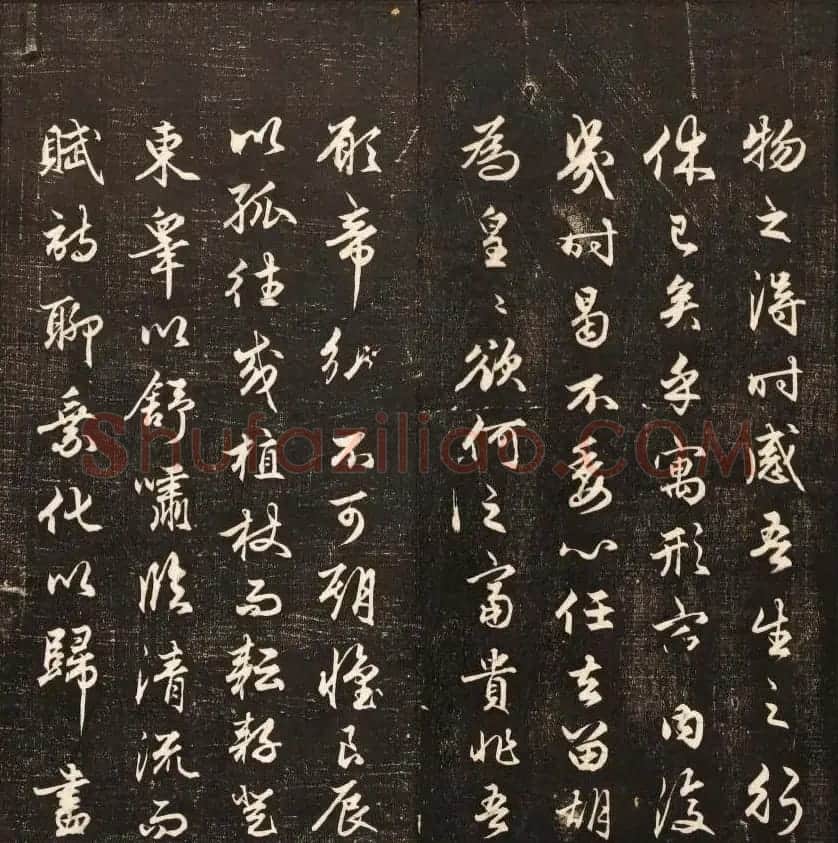 物之得時感吾生之行
休已矣乎寓形宇内復
幾时曷不委心任去留胡
為皇〻欲何之富貴非吾
願帝鄉不可期懷良辰
以孤往或植杖而耘耔登
東皋以舒嘯臨清流而
賦詩聊乘化以歸盡
Shufaziliao.COM